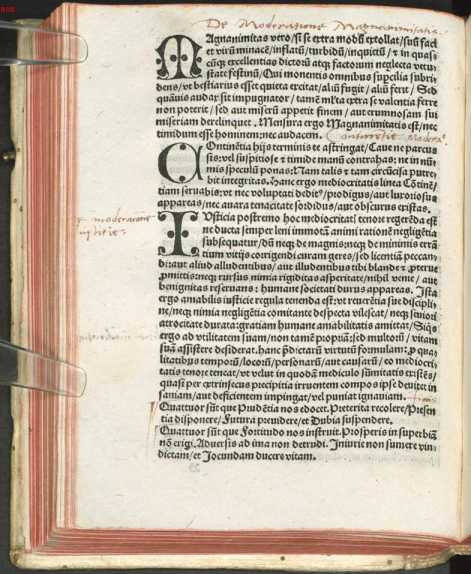 De Moderatione Magnanimitatis
MAgnanimitas vero/si se extra modũ extollat/suũ facit
et virũ minacẽ/inflatũ/turbidũ/inquietũ/ et in quas-
cũqʒ excellentias dictorũ atqʒ factorum neglecta vetu-
state festinũ/ Qui momentis omnibus supcilia subri-
dens/vt bestiarius esset quieta excitat/aliũ fugit/ aliũ ferit/ Sed
quãuis audax sit impugnator/ tamẽ mlta extra se valentia ferre
non poterit/sed aut miserũ appetit finem/ aut erumnosam sui
miseriam derelinquet. Mensura ergo Magnanimitatis est/nec
timidum esse hominem:nec audacem.
COntinẽtia hijs terminis te astringat/Caue ne parcus
sis:vel suspitiose et timide manũ contrahas: ne in nũ-
mis spẽculũ ponas:Nam talis et tam circũcisa putre-
bit integritas. Hanc ergo mediocritatis linea Cõtinẽ-
tiam seruabis:vt nec voluptati deditꝰ/prodigus/aut luxuriosus
appareas/nec auara tenacitate sordidus/aut obscurus existas.
IUsticia postremo hoc mediocritatꝭ tenore regẽda est
ne ducta semper leni immotã animi rationẽ negligẽtia
subsequatur/dũ necqʒ de magnis:necqʒ de minimis errã-
tium vitijs corrigendi curam geres/sed licentiã peccan-
di:aut aliud alludentibus/aut illudentibus tibi blande et pterue
pmittis:necqʒ rursus nimia rigiditas asperitate/nihil venie/ aut
benignitas reseruans : humane societati durus appareas. Ita
ergo amabilis iusticie regula tenenda est:vt reuerẽtia sue disciplí-
ne/necqʒ nimia negligẽtia comitante despecta vilescat/necqʒ seniori
atrocitate durata:gratiam humane amabilitatis amittat/Siqs
ergo ad vtilitatem suam/non tamẽ propiã:sed multorũ/ vitam
suã assistere desiderat.hanc pdictarũ virtutũ formulam:p qua-
litatibus temporũ/locorũ/personarũ/aut causarũ/eo mediocri-
tatis tenore teneat/vt velut in quodam mediculo sũmitatis existẽs/
quasi per extrinsecus precipitia irruentem compos ipse deuitet in-
saniam/aut deficientem impingat/vel puniat ignauiam.
Quattuor sũt que Prudẽtia nos edocet. Preterita recolere/Presen-
tia disponere/Futura preuidere/et Dubia suspendere.
Quattuor sũt que Fortitudo nos instruit. Prosperis in superbiã
nõ erigi. Aduersis ad ima non detrudi. Iniurie non sumere vin-
dictam/et Iocundam ducere vitam.